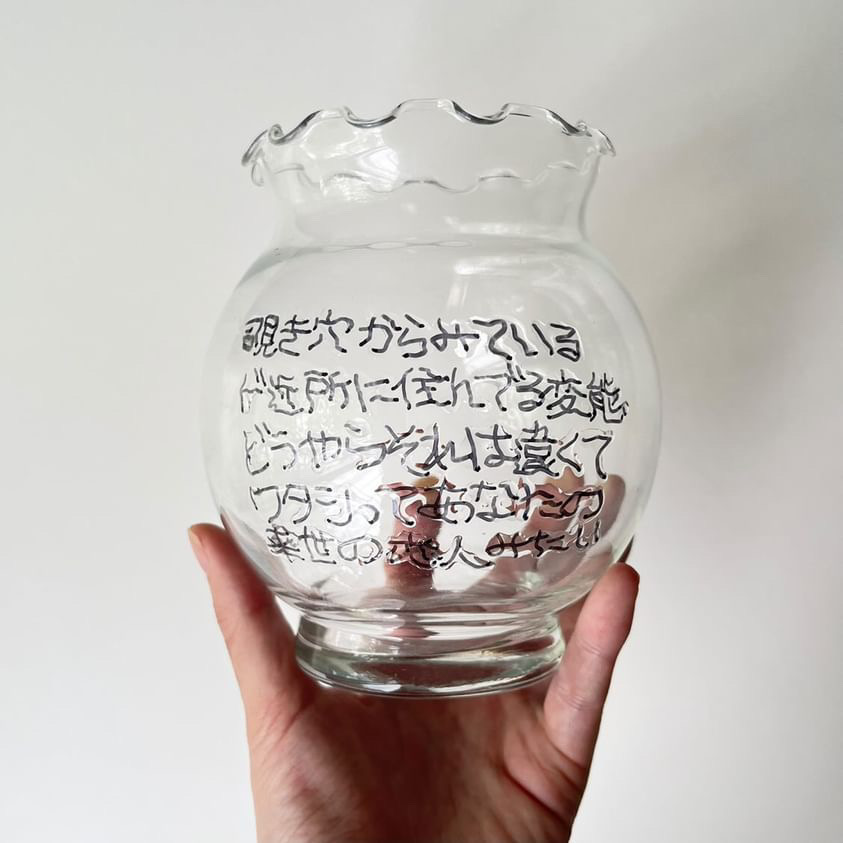 覗き穴からみている
ご近所に住んでる変態
どうやらそれは違くて
ワタシってあなたの
来世の恋人みたい